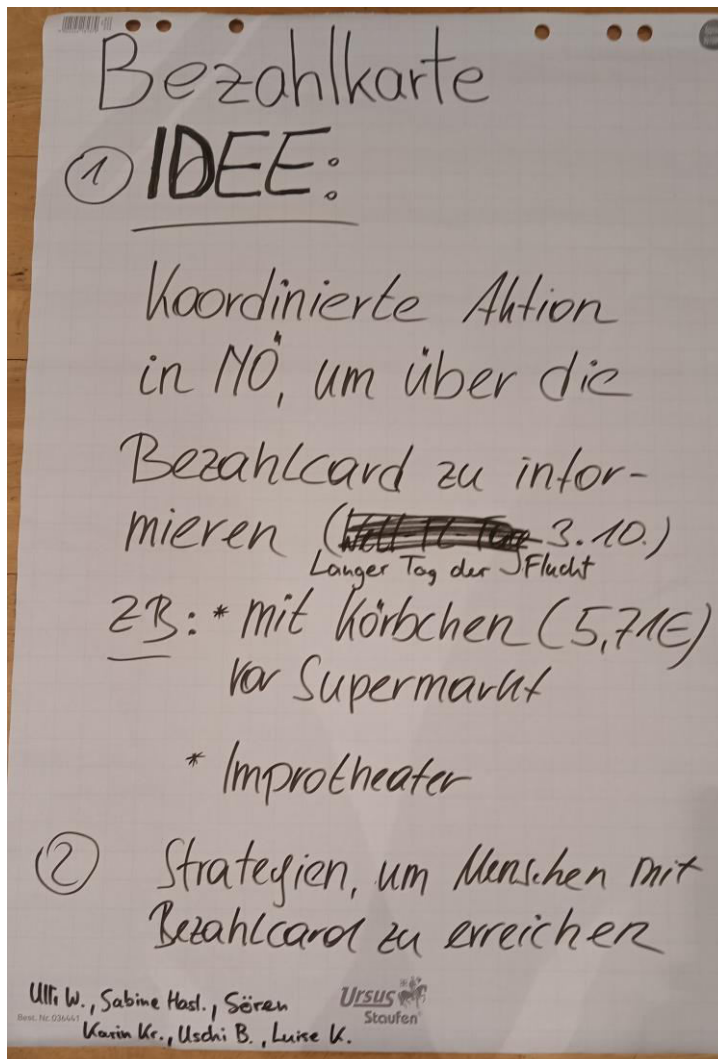 Bezahlkarte
1 IDEE:
Koordinierte Aktion
in NÖ, um über die
Bezahlcard zu infor-
mieren ( 3.10.)
Langer Tag der Flucht
ZB: * mit Körbchen (5,71€)
vor Supermarkt
* Improtheater
2 Strategien, um Menschen mit
Bezahlcard zu erreichen
Ulli W., Sabine Hasl., Sören
Karin Kr., Uschi B., Luise K.
Best. Nr. 036441
Ursus
Staufen